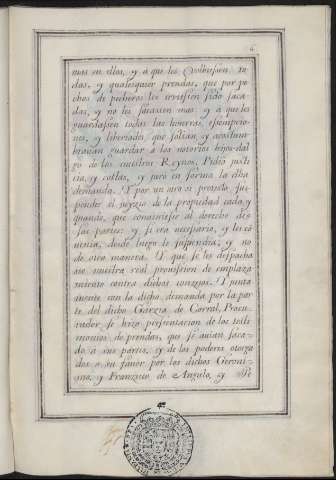 6
mas en ellos, y a que les Volviessen to-
das, y qualesquier prendas, que por pe-
chos de pecheros les oviessen sido saca-
das, y no les sacassen mas y a que les
guardassen todas las honrras, essempcio-
nes, y libertades, que solian, y acostum-
braban guardar a los notorios hijos-dal-
go de los nuestros Reynos. Pidió justi-
cia, y costas, y juro en forma la dicha
demanda. Y por un otro si protesto sus-
pender el juyzio de la propiedad cada, y
quando, que conuiniesse al derecho de
sus partes: y si era necesario, y les co-
uenia, desde luego le suspendia, y no
de otra manera. Y que se les despacha
sse nuestra real prouision de emplaza-
miento contra dichos conzejos. Y junta
mente con la dicha demanda por la par
te del dicho Garzia de Corral, Procu-
rador se hizo presentacion de los testi-
monios de prendas, que se auian saca-
do a sus partes, y de los poderes otorga
dos a su fauor por los dichos Geroni-
mo, y Franzisco de Angulo, y Se